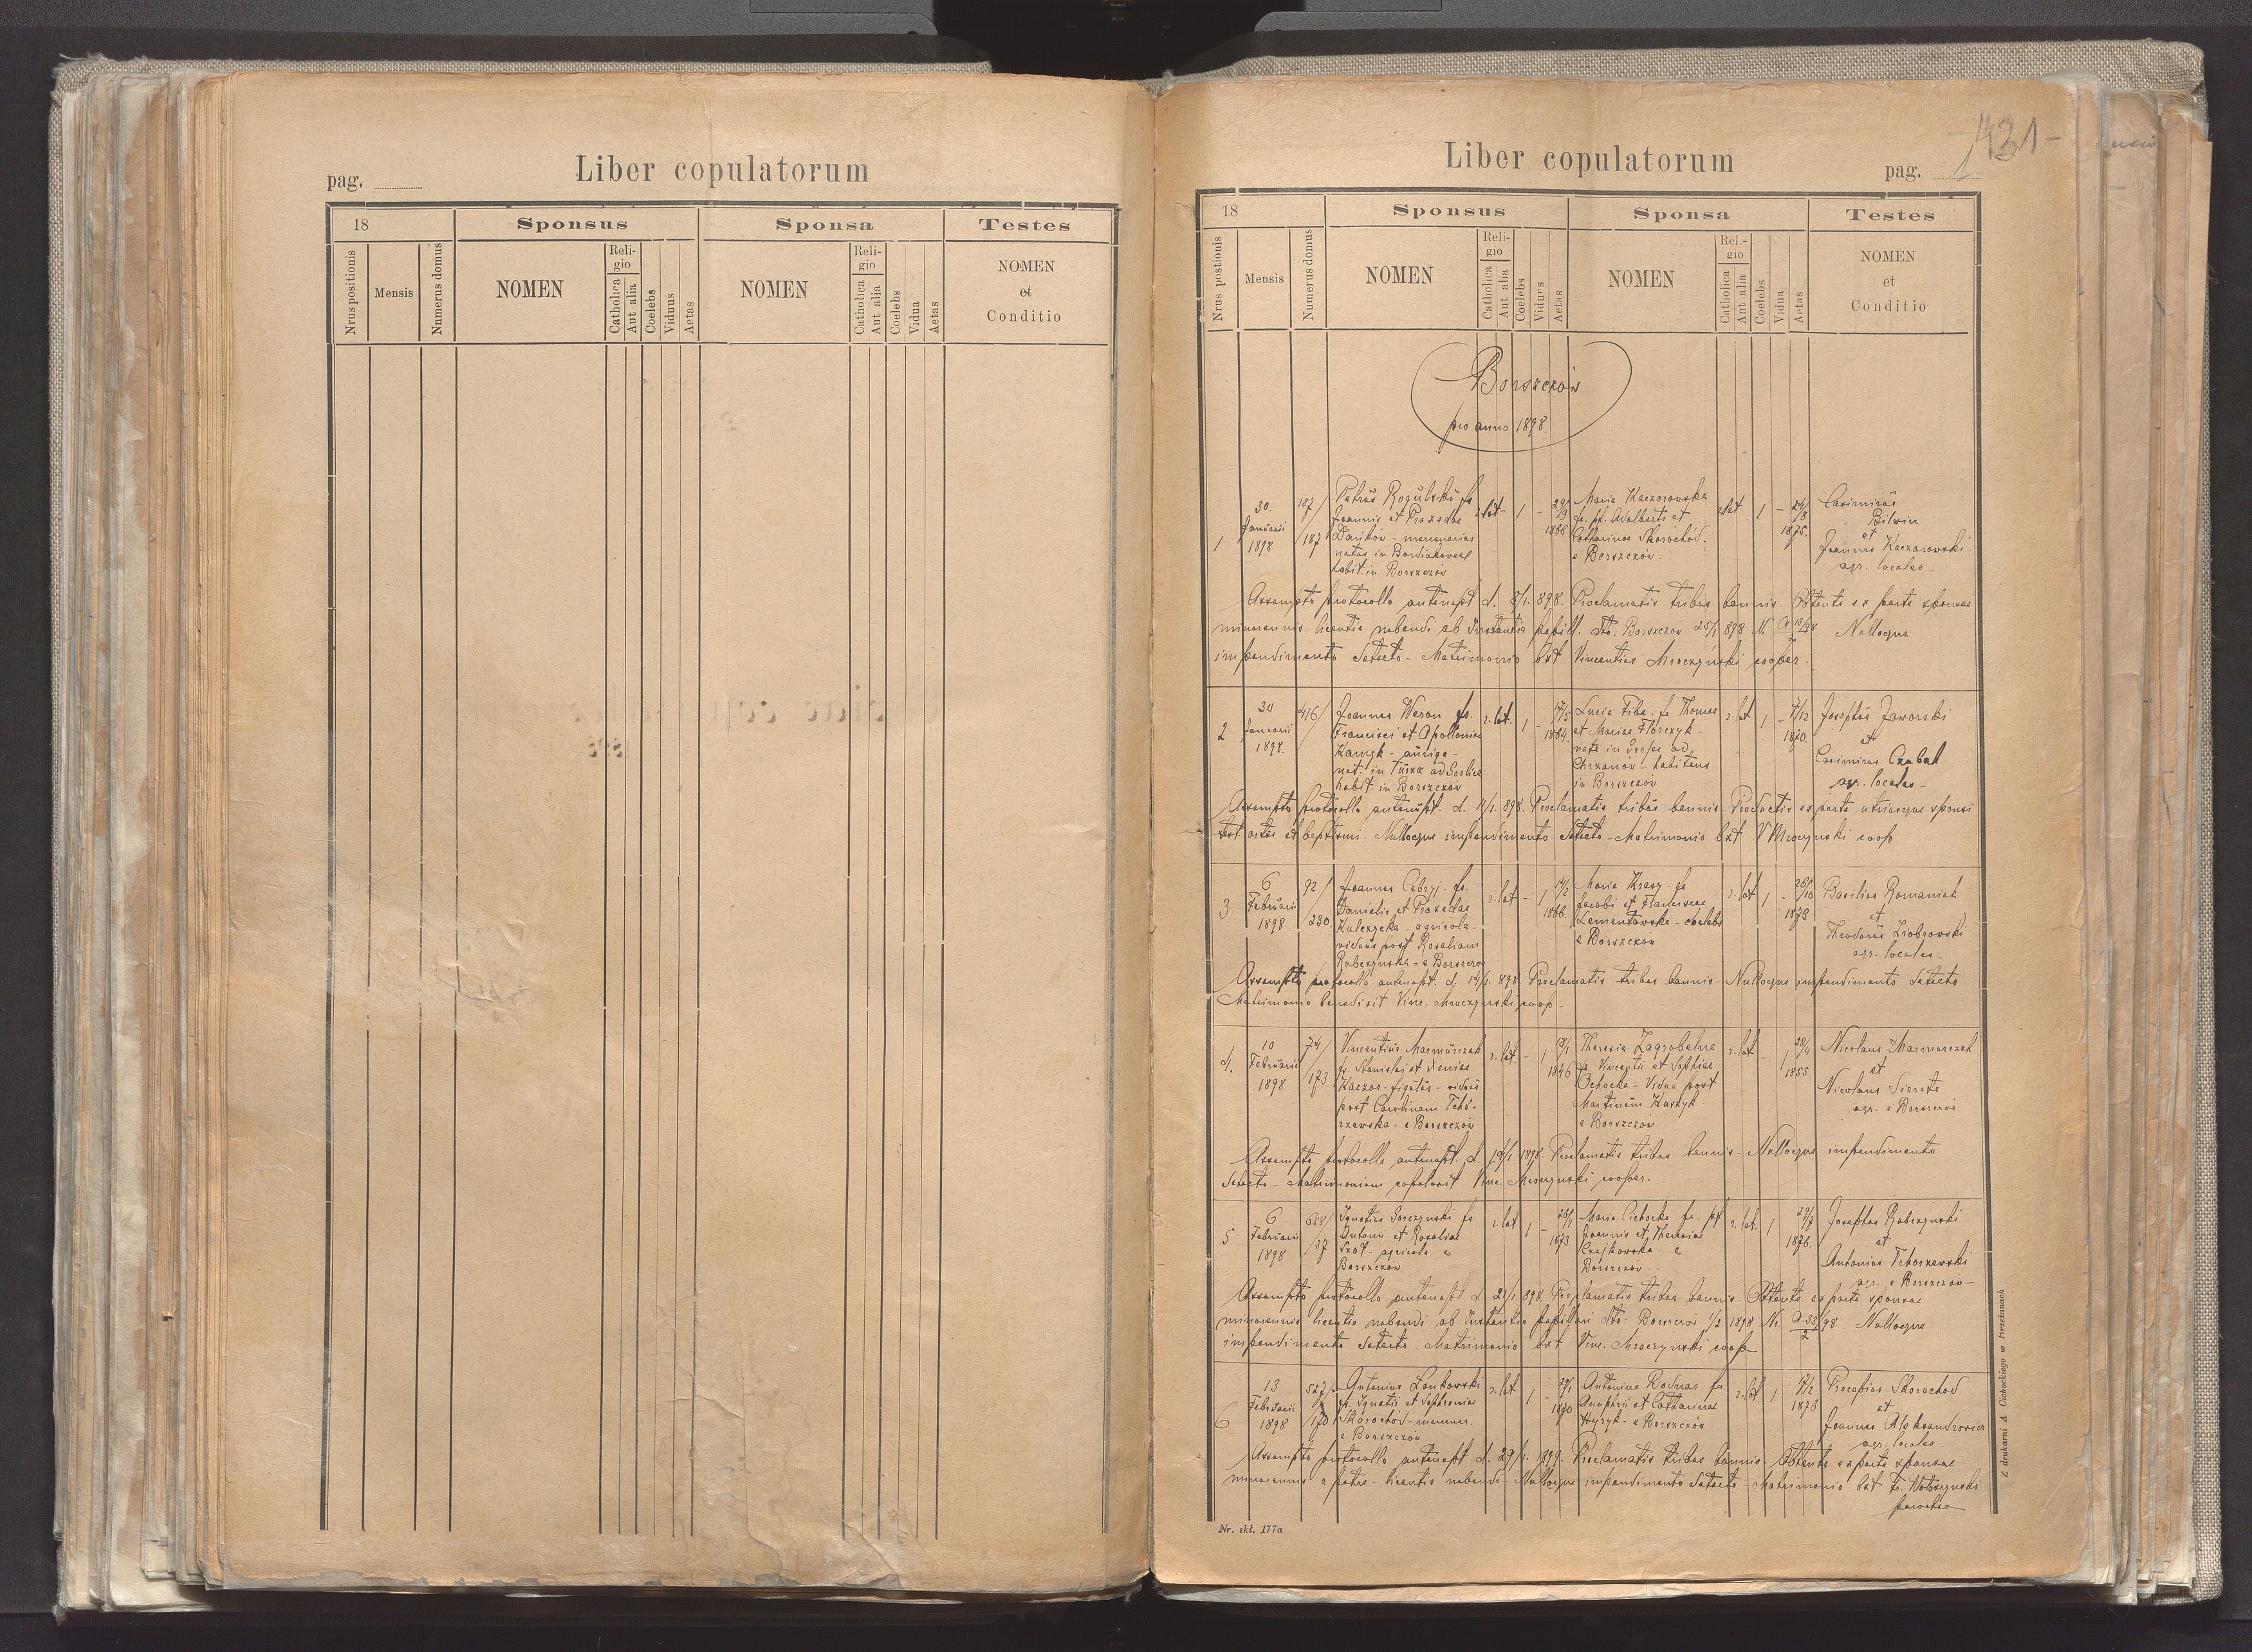 pag.
Liber copulatorum
18
Sponsus
Sponsa
Testes
Nrus positionis
Mensis
Numerus domus
NOMEN
Religio
Catholica
Aut alia
Coelebs
Viduus
Aetas
NOMEN
Religio
Catholica
Aut alia
Coelebs
Vidua
Aetas
NOMEN
et
Conditio
Liber copulatorum
pag. 1
431-
18
Sponsus
Sponsa
Testes
Nrus postionis
Mensis
Numerus domus
NOMEN
Religio
Catholica
Aut alia
Coelebs
Viduus
Aetas
NOMEN
Religio
Catholica
Aut alia
Coelebs
Vidua
Aetas
NOMEN
et
Conditio
Borszczów
pro anno 1898
1
30
Januarii
1898
187/
/187
Petrus Rogulski fs
Joannis et Praxedae
mercenarius
natus in
habit. in Borszczów
r. lat
1
-
29/9
1868
Maria Kaczorowska
fa pf. Adalberti et
Catharinae Skorochód
e Borszczów
r. lat
1
-
24/8
1875.
Casimirus
Bilwin
et
Joannes Kaczorowski
agr. locales
Assumpto protocollo antenupt d. 8/1. 898. Proclamatis tribus bannis. Obtenta ex parte sponsae
minorennis licentia nubendi ab Instantia pupill. dto: Borszczów 25/1 898 N. Nulloque
impendimento detecto - Matrimonio bxt Vincentius Mroczyński cooper.
2
30
Januarii
1898.
416/
Joannes Weron fs.
Francisci et Apolloniae
auriga
nat. in ad Gorlice
habit in Borszczów
r. lat.
1
-
17/5
1864.
Lucia Fiba fa Thomae
et Mariae Florczyk
nata in ad
Chrzanów - habitans
in Borszczów
r. lat
1
-
7/12
1870.
Josephus Jaworski
et
Casimirus Czubat
agr. locales
Assumpto protocollo antenupt. d. 898. Proclamatis tribus bannis - Productis ex parte utriusque sponsi
test. ortus et baptismi - Nulloque impendimento detecto - Matrimonio bxt V Mroczyński coop
3
6
Februarii
1898
92/
/230
Joannes Cebryj - fs.
Danielis et Praxedae
Kulczycka - agricola
viduus post Rosaliam
Rabczynska - e Borszczów
r. lat
-
1
14/2
1866.
Maria Krasy - fa
Jacobi et Franciscae
Lamentowska - coelebs
e Borszczów
r. lat
1
-
26/10
1873
Basilius Romaniak
et
Theodorus Ziobrowski
agr. locales
Assumpto protocollo antenupt. d. 14/1. 898. Proclamatis tribus bannis - Nulloque impendimento detecto
Matrimonio benedixit Vinc. Mroczyński coop
4.
10
Februarii
1898
74/
/173
Vincentius Marmurczak
fs. Stanislai et Xeniae
Kaczor - figulus - viduus
post Carolinam Tchó-
rzewska - e Borszczów
r. lat
-
1
18/1
1846
Theresia Zagrobelna
fa. Vincentii et Sophiae
Ochocka - Vidua post
Martinum Kuszyk
e Borszczów
r. lat
-
1
28/4
1855
Nicolaus Marmurczak
et
Nicolaus Sierota
agr. e Borszczów
Assumpto protocollo antenupt. d. 19/1 1898. Proclamatis tribus bannis - Nulloque impendimento
detecto - Matrimonium copulavit Vinc. Mroczyński cooper.
5
6
Februarii
1898
/37
Ignatius Gorczynski fs
Antonii et Rosaliae
Szot - agricola e
Borszczów
r. lat
1
-
1873
Maria Cichocka fa. pf
Joannis et Theresiae
Czajkowska - e
Borszczów
r. lat.
1
29/7
1876.
Josephus Rabczynski
et
Antonius Tchorzewski
agr. e Borszczów
Assumpto protocollo antenupt d. 898. Proclamatis tribus bannis - Obtenta ex parte sponsae
minorennis licentia nubendi ab Instantia pupillari dto: Borszczów 1/2 1898 Nr. Nulloque
impendimento detecto - Matrimonio bxt Vinc. Mroczynski coop
6
13
Februarii
1898
527/
/170
Antonius Lankowski
fs. Ignatii et Sophroniae
Skorochód - mercenar.
e Borszczów
r. lat
1
-
29/1
1870
Antonina Bodnar fa
Onuphrii et Catharinae
Hyryk - e Borszczów
r. lat
1
5/2
1878
Procopius Skorochod
et
Joannes Aleksandrowicz
agr. locales
Assumpto protocollo antenupt d. 29/1. 1899. Proclamatis tribus bannis. Obtenta ex parte sponsae
minorennis a patre - licentia nubendi - Nulloque impendimento detecto - Matrimonio bxt Fr. Wołoszynski
parochus
Nr. skł. 177a
Z drukarni A. Cichockiego w Brzeżanach